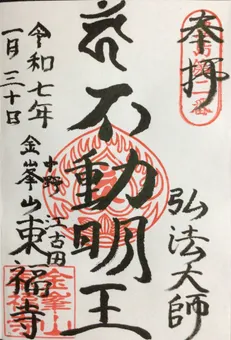 奉拝
弘法大師
不動明王
中野 江古田
金峯山東福寺
令和七年
一月三十日